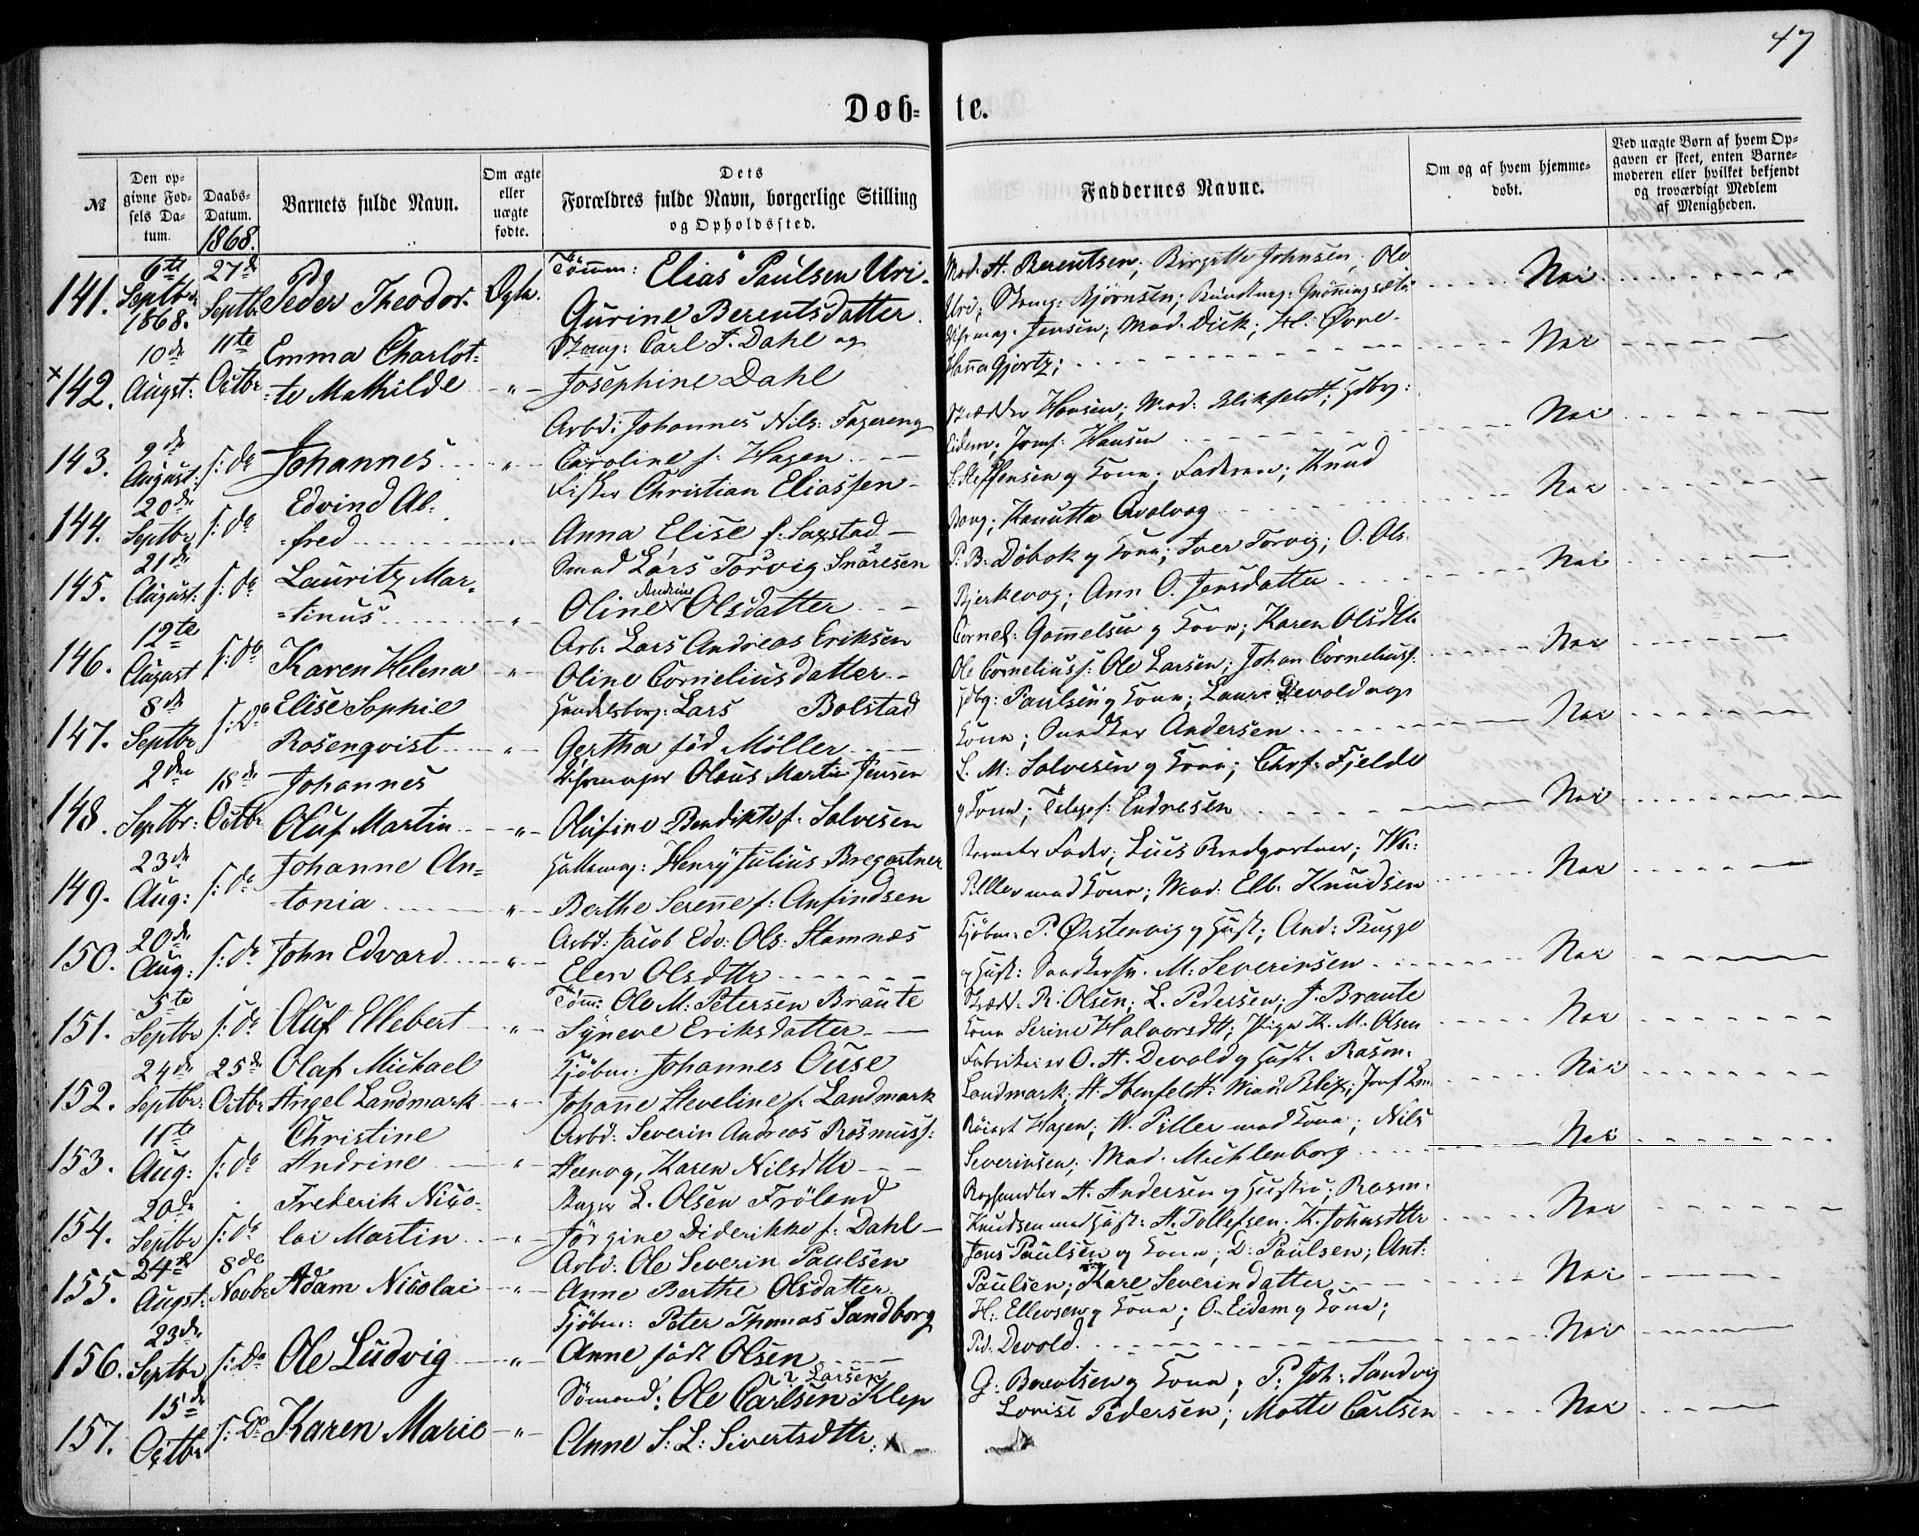 47
Døb-te.
№
Den opgivne Fødsels Datum.
Daabs-Datum.
1868.
Barnets fulde Navn.
Om ægte eller uægte fødte.
Dets Forældres fulde Navn, borgerlige Stilling og Opholdssted.
Faddernes Navne.
Om og af hvem hjemmedøbt.
Ved uægte Børn af hvem Opgaven er skeet, enten Barnemoderen eller hvilket bekjendt og troværdigt Medlem af Menigheden.
141. 6te Septbr. 1868. 27de Septbr. Peder Theodor. Ægte.
Tømm: Elias Paulsen Uri -
Gurine Berentsdatter.
Mad. A. Berentsen; Birgitte Johnsen, Ole
Uri; Skomg: Bjørnsen; Nei
x 142. 10de Augst: 11te Octbr Emma Charlot-
=te Mathilde - " -
Skomg: Carl F. Dahl og
Josephine Dahl
Jensen; Mad. Dick; H. Øvre-
Hanna Gjørtz; Nei
143. 9de August: s: da Johannes - " -
Arbd: Johannes Nils: Fagereng
Caroline f: Hagen
Hansen; Mad: Blikfeldt;
Eidem; Jomf: Hansen Nei
144. 20de Septbr s: da Edvind Al-
=fred - " -
Fisker Christian Eliassen -
Anna Elise f: Saxstad -
Steffensen og Kone; Faderen; Knud
Nei
145. 21de August: s: da Lauritz Mar-
=tinus - " -
Smed Lars Torvig Snaresen
Oline Andrine Olsdatter
P. B. Døbok og Kone; Iver Torvig; O. Ols.
Bjerkevog; Ann O. Jensdatter Nei
146. 12te August s: da Karen Helena - " -
Arb. Lars Andreas Eriksen
Oline Corneliusdatter -
Cornel: Gammelsen og Kone; Karen Olsdtr
Ole Corneliuss: Ole Larsen; Johan Corneliuss. Nei
147. 8de Septbr s: Da Elise Sophie
Rosenqvist - " -
Handelsborg: Lars Bolstad
Gertha fød Møller
Paulsen og Kone; Devold og
Kone; Snedker Andersen Nei
148. 2den Septbr: 18de Octbr Johannes
Oluf Martin - " -
Uhrmager Olaus Martin Jensen
Olufine Bendikte f: Salvesen
L. M. Salvesen og Kone; Chrf: Fjelde
og Kone; Telegf: Endresen Nei
149. 23de Aug: s: da Johanne An-
tonia - " -
Hattemag: Henry Julius Bregartner
Berthe Serenne f: Anfindsen
Barnets Fader; Bredgartner; W.
Piller med Kone; Mad. Elb. Knudsen Nei
150. 20de Aug: s: da John Edvard - " -
Arbd: Jacob Edv: Ols: Stamnæs
Elen Olsdttr
Kjøbm: P. Ørstenvig og Hust; And: Bugge
og Hust: M: Severinsen Nei
151. 5te Septbr s: da Oluf Ellebert - " -
Tøm: Ole M: Petersen Braute
Syneve Eriksdatter
Skræd: R: Olsen; L. Pedersen; J. Braute
Kone Serine Halvorsdtr; Pige K. M. Olsen Nei
152. 24de Septbr: 25de Octbr Olaf Michael
Angel Landmark - " -
Kjøbm: Johannes Ouse
Johanne Heveline f: Landmark
Fabrikeier O. A. Devold og Hust. Rasm.
Landmark; H. Stenfeldt: Mad: Blix; Nei
153. 11te Aug: s: da Christine
Andrine - " -
Arbd: Severin Andreas Rasmuss:
Karen Nilsdtr
Hagen; W. Piller med Kone; Nils
Severinsen; Mad. Muhlenborg Nei
154. 20de Septbr s: da Frederik Nico-
lai Martin - " -
Bager L. Olsen Frøland
Jørgine Diderikke f: Dahl -
A. Andersen og Hustru; Rasm.
Knudsen med Hust: A. Tollefsen: K. Johnsdttr Nei
155. 24de Augst: 8de Novbr Adam Nicolai - " -
Arbd: Ole Severin Paulsen
Anne Berthe Olsdatter
Jens Paulsen og Kone; D: Paulsen; Ant:
Paulsen; Kare Severindatter Nei
156. 23de Septbr s: Da Ole Ludvig - " -
Kjøbm: Peter Thomas Sandborg
Anne født Olsen
H: Ellevsen og Kone; O. Eidem og Kone;
Pd. Devold. Nei
157. 15de Octbr s: Da Karen Marie - " -
Sømand: Ole Carlsen Klep
Larsen
Anne S: L: Sivertsdttr
G: Berentsen og Kone; P: Joh: Sandvig
Lovise Pedersen; Matte Carlsen Nei